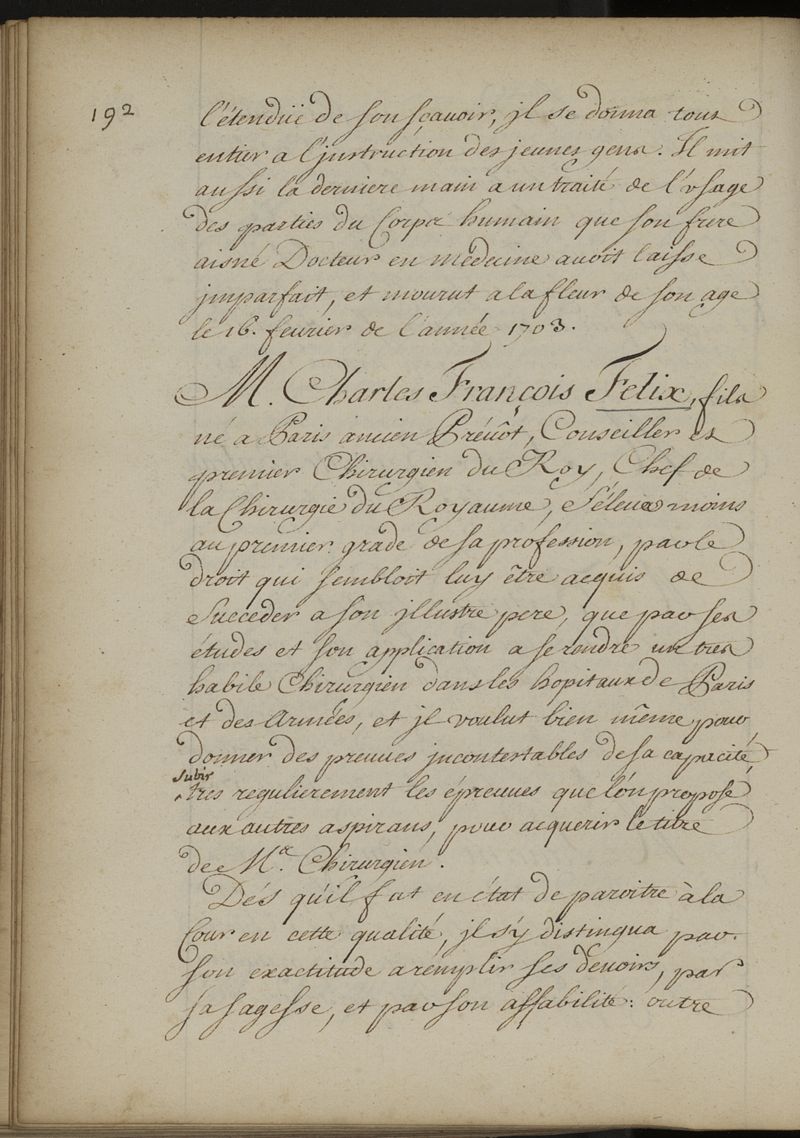 192
l'étenduë de son sçavoir, jl se donna tout
entier a l'jnstruction des jeunes gens. Il mit
aussi la derniere main a un traité de l'vsage
des parties du Corps humain que son frere
aisné Docteur en medecine avoit laisse
jmparfait, et mourut a la fleur de son age
le 16. fevrier de l'année 1703.
M. Charles François Felix, fils
né a Paris ancien Prévôt, Conseiller et
premier Chirurgien du Roy, Chef de
la Chirurgie du Royaume, s'éleva moins
au premier grade de sa profession, par le
droit qui sembloit luy être acquis de
succeder a son jllustre pere, que par ses
études et son application a se rendre un tres
habile Chirurgien dans les hopitaux de Paris
et des Armées, et jl voulut bien même pour
donner des preuves jncontestables de sa capacité,
subir
tres regulierement les épreuves que l'on propose
aux autres aspirans, pour acquerir le titre
de Me. Chirurgien.
Dés qu'il fut en état de paroitre à la
Cour en cette qualité, jl s'y distingua par
son exactitude a remplir ses devoirs, par
sa sagesse, et par son affabilité: outre